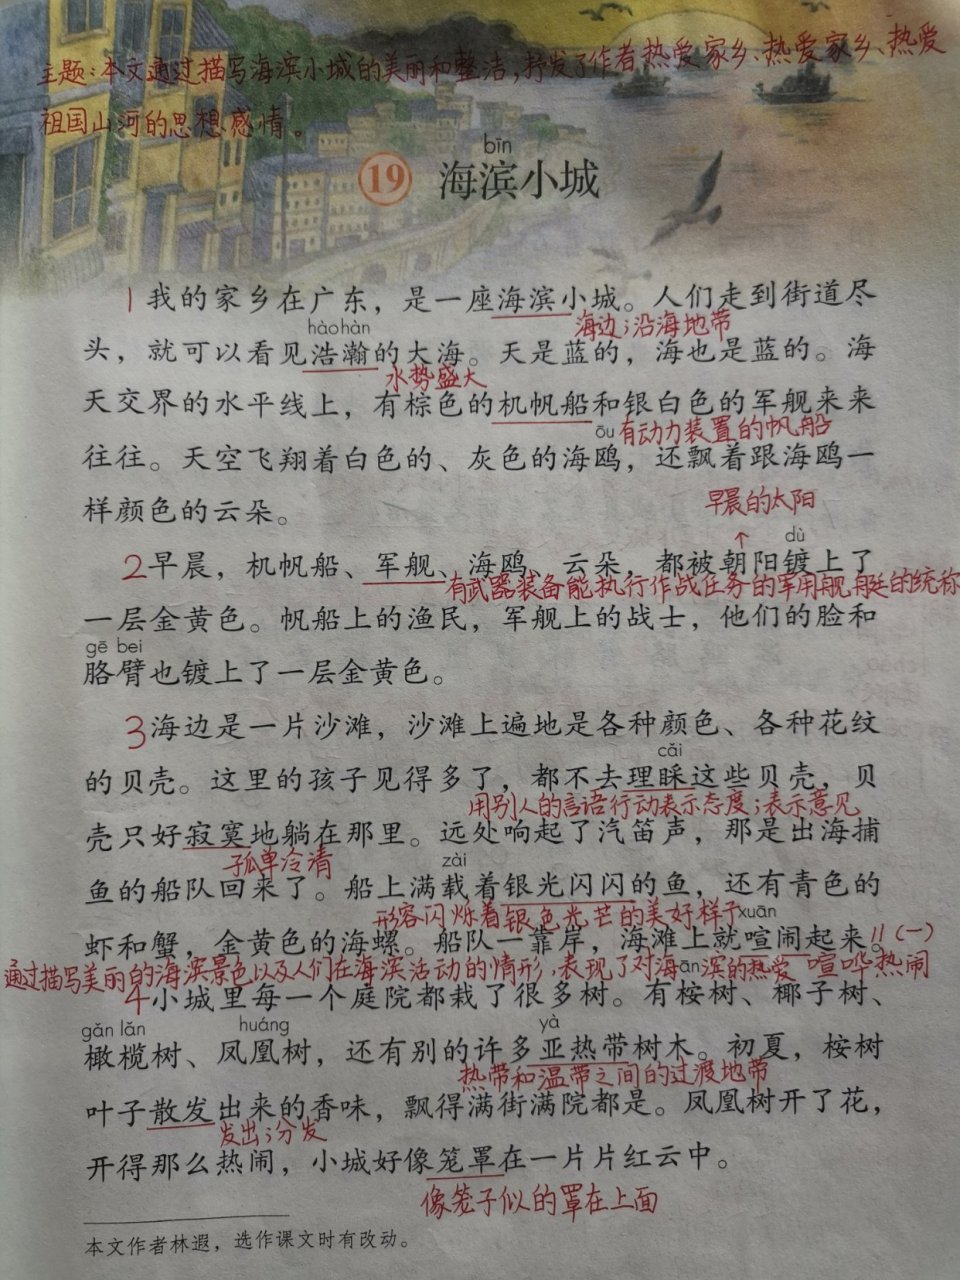 主题:本文通过描写海滨小城的美丽和整洁,抒发了作者热爱家乡、热爱家乡、热爱
祖国山河的思想感情。
bīn
19 海滨小城
1我的家乡在广东，是一座海滨小城。人们走到街道尽
海边;沿海地带
hào hàn
头，就可以看见浩瀚的大海。天是蓝的，海也是蓝的。海
水势盛大
天交界的水平线上，有棕色的机帆船和银白色的军舰来来
有动力装置的帆船
ōu
往往。天空飞翔着白色的、灰色的海鸥，还飘着跟海鸥一
样颜色的云朵。
早晨的太阳
↑
dù
2早晨，机帆船、军舰、海鸥、云朵，都被朝阳镀上了
有武器装备能执行作战任务的军用舰艇的统称
一层金黄色。帆船上的渔民，军舰上的战士，他们的脸和
gē bei
胳臂也镀上了一层金黄色。
3海边是一片沙滩，沙滩上遍地是各种颜色、各种花纹
cǎi
的贝壳。这里的孩子见得多了，都不去理睬这些贝壳，贝
用别人的言语行动表示态度;表示意见
壳只好寂寞地躺在那里。远处响起了汽笛声，那是出海捕
孤单冷清
zài
鱼的船队回来了。船上满载着银光闪闪的鱼，还有青色的
形容闪烁着银色光芒的美好样子
xuān
虾和蟹，金黄色的海螺。船队一靠岸，海滩上就喧闹起来。11(一)
通过描写美丽的海滨景色以及人们在海滨活动的情形,表现了对海滨的热爱 喧哗热闹
ān
4小城里每一个庭院都栽了很多树。有桉树、椰子树、
gǎn lǎn huáng yà
橄榄树、凤凰树，还有别的许多亚热带树木。初夏，桉树
热带和温带之间的过渡地带
叶子散发出来的香味，飘得满街满院都是。凤凰树开了花，
发出;分发
开得那么热闹，小城好像笼罩在一片片红云中。
像笼子似的罩在上面
本文作者林遐，选作课文时有改动。